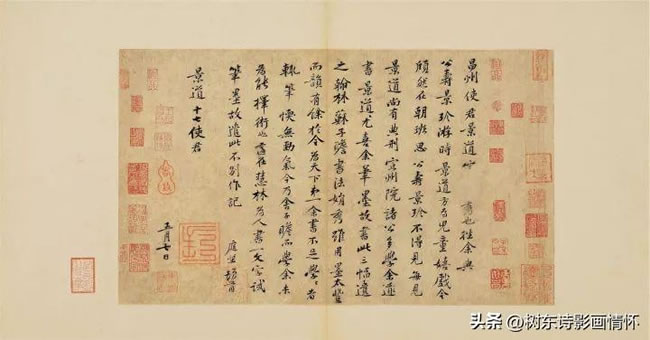 昌州使君景道宗秀也往余與
公壽景珍游時景道方為兒童嬉戲今
頎然在朝班思公壽景珍不得見每見
景道尚有典刑宣州院諸公多學余
書景道尤喜余筆墨故書此三幅遺
之翰林蘇子瞻書法娟秀雖用墨太豐
而韻有餘於今為天下第一余書不足學學者
輒筆愞無勁氣今乃舍子瞻而學余未
為能擇術也適在慧林為人書一文字試
筆墨故遣此不別作記
庭堅頓首
景道十七使君
五月七日
头条 @树东诗影画情怀